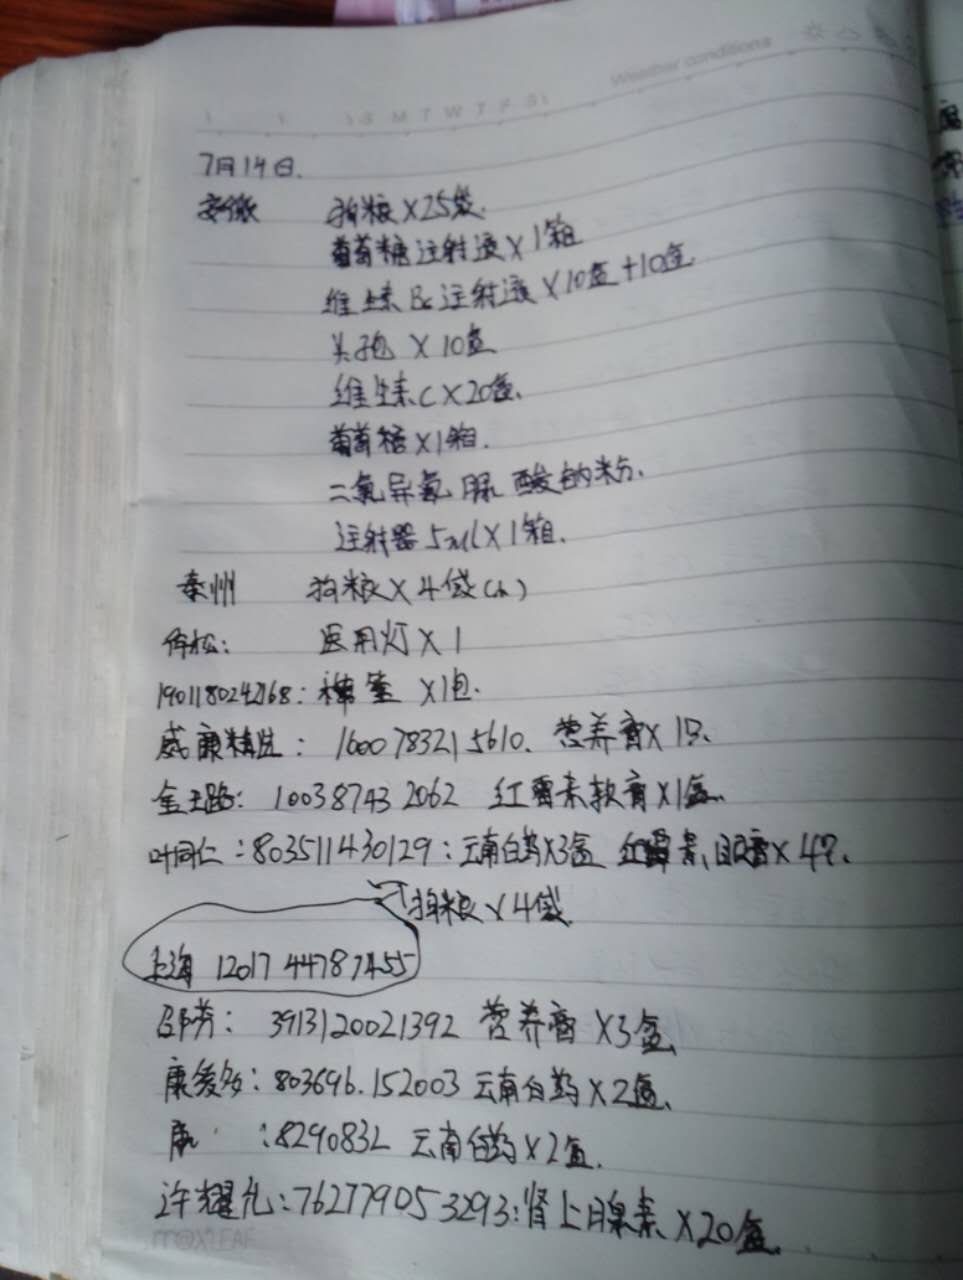 Weather conditions
M T W T F S
7月14日.
安徽 狗粮×25袋.
葡萄糖注射液×1箱
维生素B6注射液×10盒+10盒
头孢×10盒
维生素C×20盒.
葡萄糖×1箱.
二氯异氰脲酸钠粉.
注射器5ml×1箱.
泰州 狗粮×4袋(小)
医用灯×1
1901180242168: 棉签×1包.
威康精选: 1600783215610. 营养膏×1只.
金玉路: 10038743 2062 红霉素软膏×1盒.
叶同仁:803511430129:云南白药×3盒 红霉素眼膏×4只.
狗粮×4袋
上海 12017 44787455
邵芳: 3913120021392 营养膏×3盒.
康爱多:803696.152003 云南白药×2盒.
康 :8290832 云南白药×2盒.
许耀允:762779053293:肾上腺素×20盒.
m@XLEAF